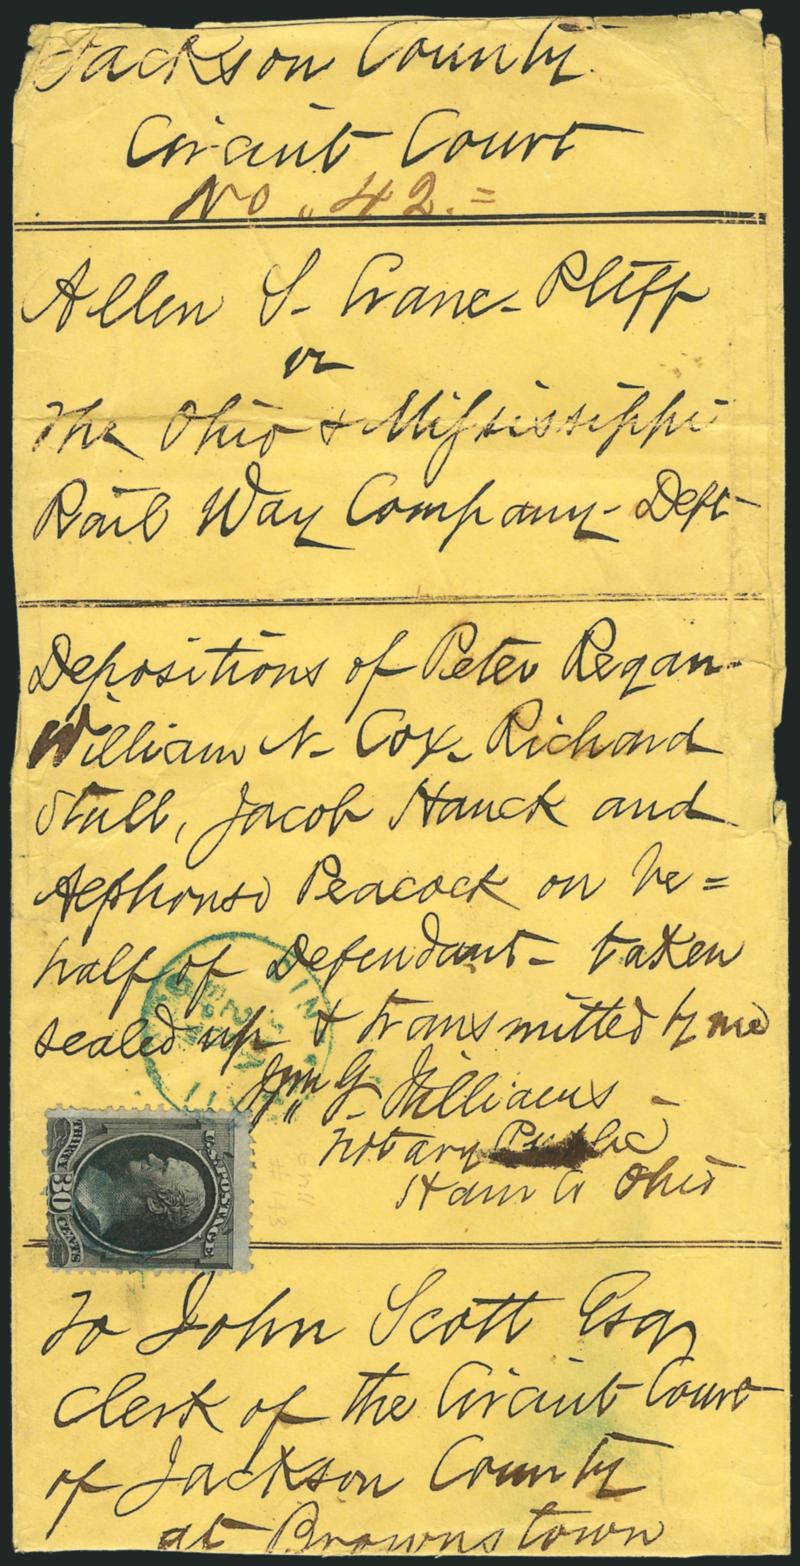 Jackson County
Circuit Court
No. 42.=
Allen S- Crane- Pltff
vs
The Ohio & Mississippi
Rail Way Company- Deft-
Depositions of Peter Regan-
William N- Cox- Richard
Stull, Jacob Hauck and
Alphonso Peacock on be=
half of Defendant- taken
sealed up & transmitted by me
Wm G- Williams-
Notary Public
Ham Co Ohio
CIN
U.S. POSTAGE
THIRTY 30 CENTS
Grill
To John Scott Esq
Clerk of the Circuit Court
of Jackson County
at Brownstown